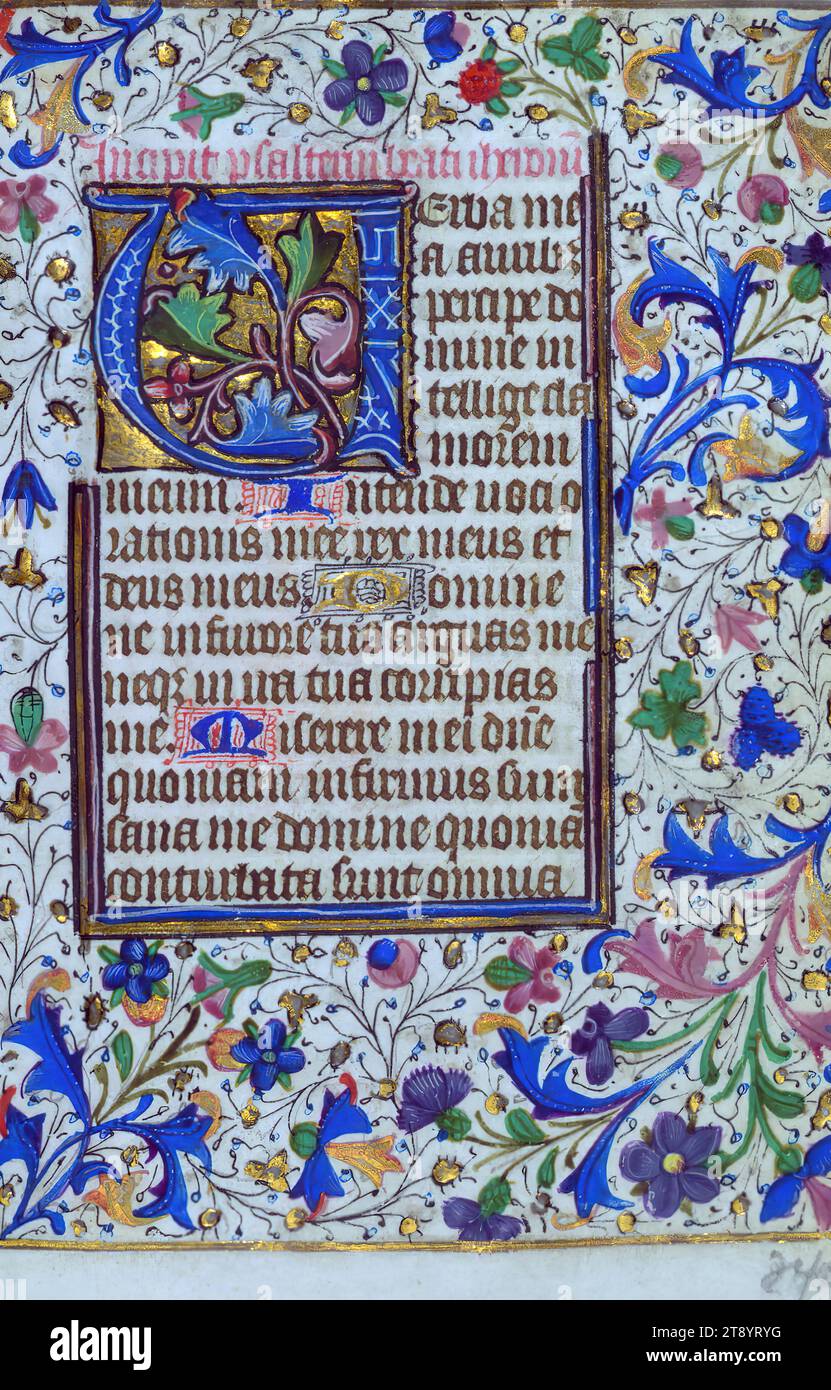 Incipit psalteriu beati iheronimi
Verba me
a auribs
percipe do
mine in
tellige cla
morem
meum Intende uoci o
rationis mee rex meus et
deus meus Domine
ne infurore tuo arguas me
neqz in ira tua corripias
me Miserere mei dne
quoniam infirmus sum
sana me domine quonia
conturbata sunt omnia
alamy
Image ID: 2T8YRYG
www.alamy.com